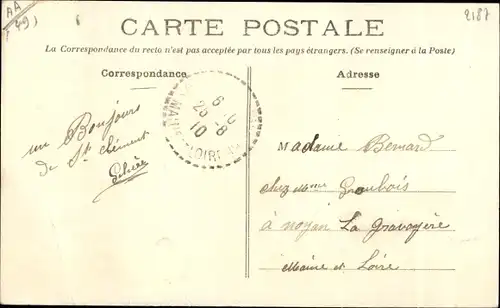 AA
(49)
6
2187
CARTE POSTALE
La Correspondance du recto n'est pas acceptée par tous les pays étrangers. (Se renseigner à la Poste)
Correspondance
Adresse
un Bonjour
de St Clément
MAINE
LOIRE
25 - 8
10
Madame Bernard
chez Mme Graubois
à noyan La Gravoyère
Maine et Loire